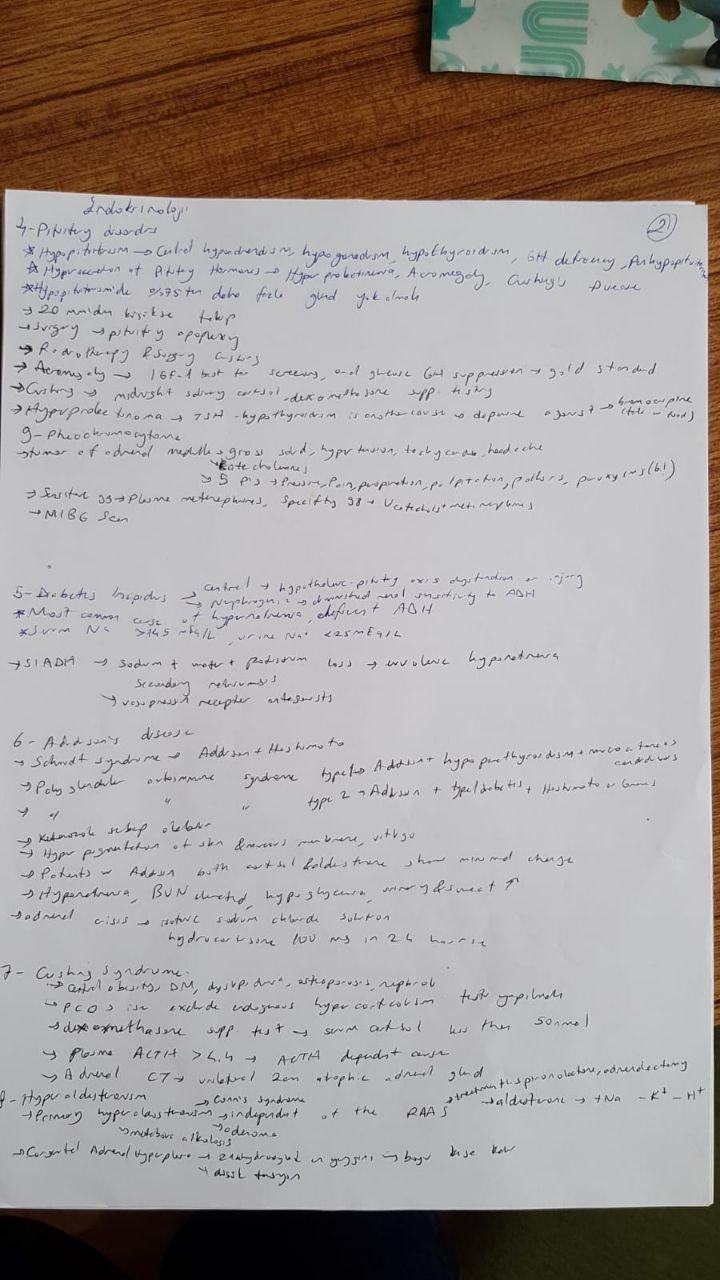 Endokrinoloji
2
4-Pituitary disorders
* Hypopituitarism → Central hypoadrenalism, hypogonadism, hypothyroidism, GH deficiency, Panhypopituitarism
* Hypersecretion of Pituitary Hormones → Hyperprolactinemia, Acromegaly, Cushing's Disease
* Hypopituitarismde %75ten daha fazla gland yok olmalı
→ 20 mmden büyükse takip
→ Surgery → pituitary apoplexy
→ Radiotherapy & Surgery Cushing
→ Acromegaly → IGF-1 best for screening, oral glucose GH suppression → gold standard
→ Cushing → midnight salivary cortisol - dexamethasone supp. testing
→ Hyperprolactinoma → TSH - hypothyroidism is another cause → dopamine agonist → bromocriptine
9-Pheochromocytoma
→ tumor of adrenal medulla → gross solid, hypertension, tachycardia, headache
catecholamines
→ 5 p's → Pressure, Pain, perspiration, palpitation, pallors, paroxysms (6.)
→ Sensitive 99 → Plasma metanephrines, Specifity 98 →
→ MIBG Scan
5-Diabetes Insipidus → central → hypothalamic-pituitary axis dysfunction or injury
→ Nephrogenic → diminished renal sensitivity to ADH
* Most common cause of hypernatremia, deficient ADH
* Serum Na >145 mEq/L, urine Na+ <25 mEq/L
→ SIADH → Sodium + water + potassium loss → hyponatremia
Secondary
→ vasopressin receptor antagonists
6- Addison's disease
→ Schmidt syndrome → Addison + Hashimoto
→ Polyglandular autoimmune syndrome type 1 → Addison + hypoparathyroidism + mucocutaneous
candidiasis
→ " " " type 2 → Addison + type 1 diabetes + Hashimoto or Graves
→ Ketonazole sebep olabilir
→ Hyperpigmentation of skin & mucous membrane, vitiligo
→ Patients w Addison both cortisol & aldosterone show minimal change
→ Hyponatremia, BUN elevated, hypoglycemia, urinary & sweat ↑
→ adrenal crisis → isotonic sodium chloride solution
hydrocortisone 100 mg in 24 hours
7- Cushing Syndrome
→ central obesity, DM, dyslipidemia, osteoporosis,
→ PCOS ise exclude endogenous hypercorticolism testi yapılmalı
→ dexamethasone supp. test → serum cortisol less than 50nmol
→ plasma ACTH >4,4 → ACTH dependent cause
→ Adrenal CT → unilateral 2cm atrophic adrenal gland
8- Hyperaldosteronism → Conn's syndrome → treatment is spironolactone, adrenalectomy
→ Primary hyperaldosteronism → independent of the RAAS → aldosterone → +Na -K+ -H+
→ metabolic alkalosis → adenoma
→ Congenital Adrenal Hyperplasia → 21 → boyu kısa kalır